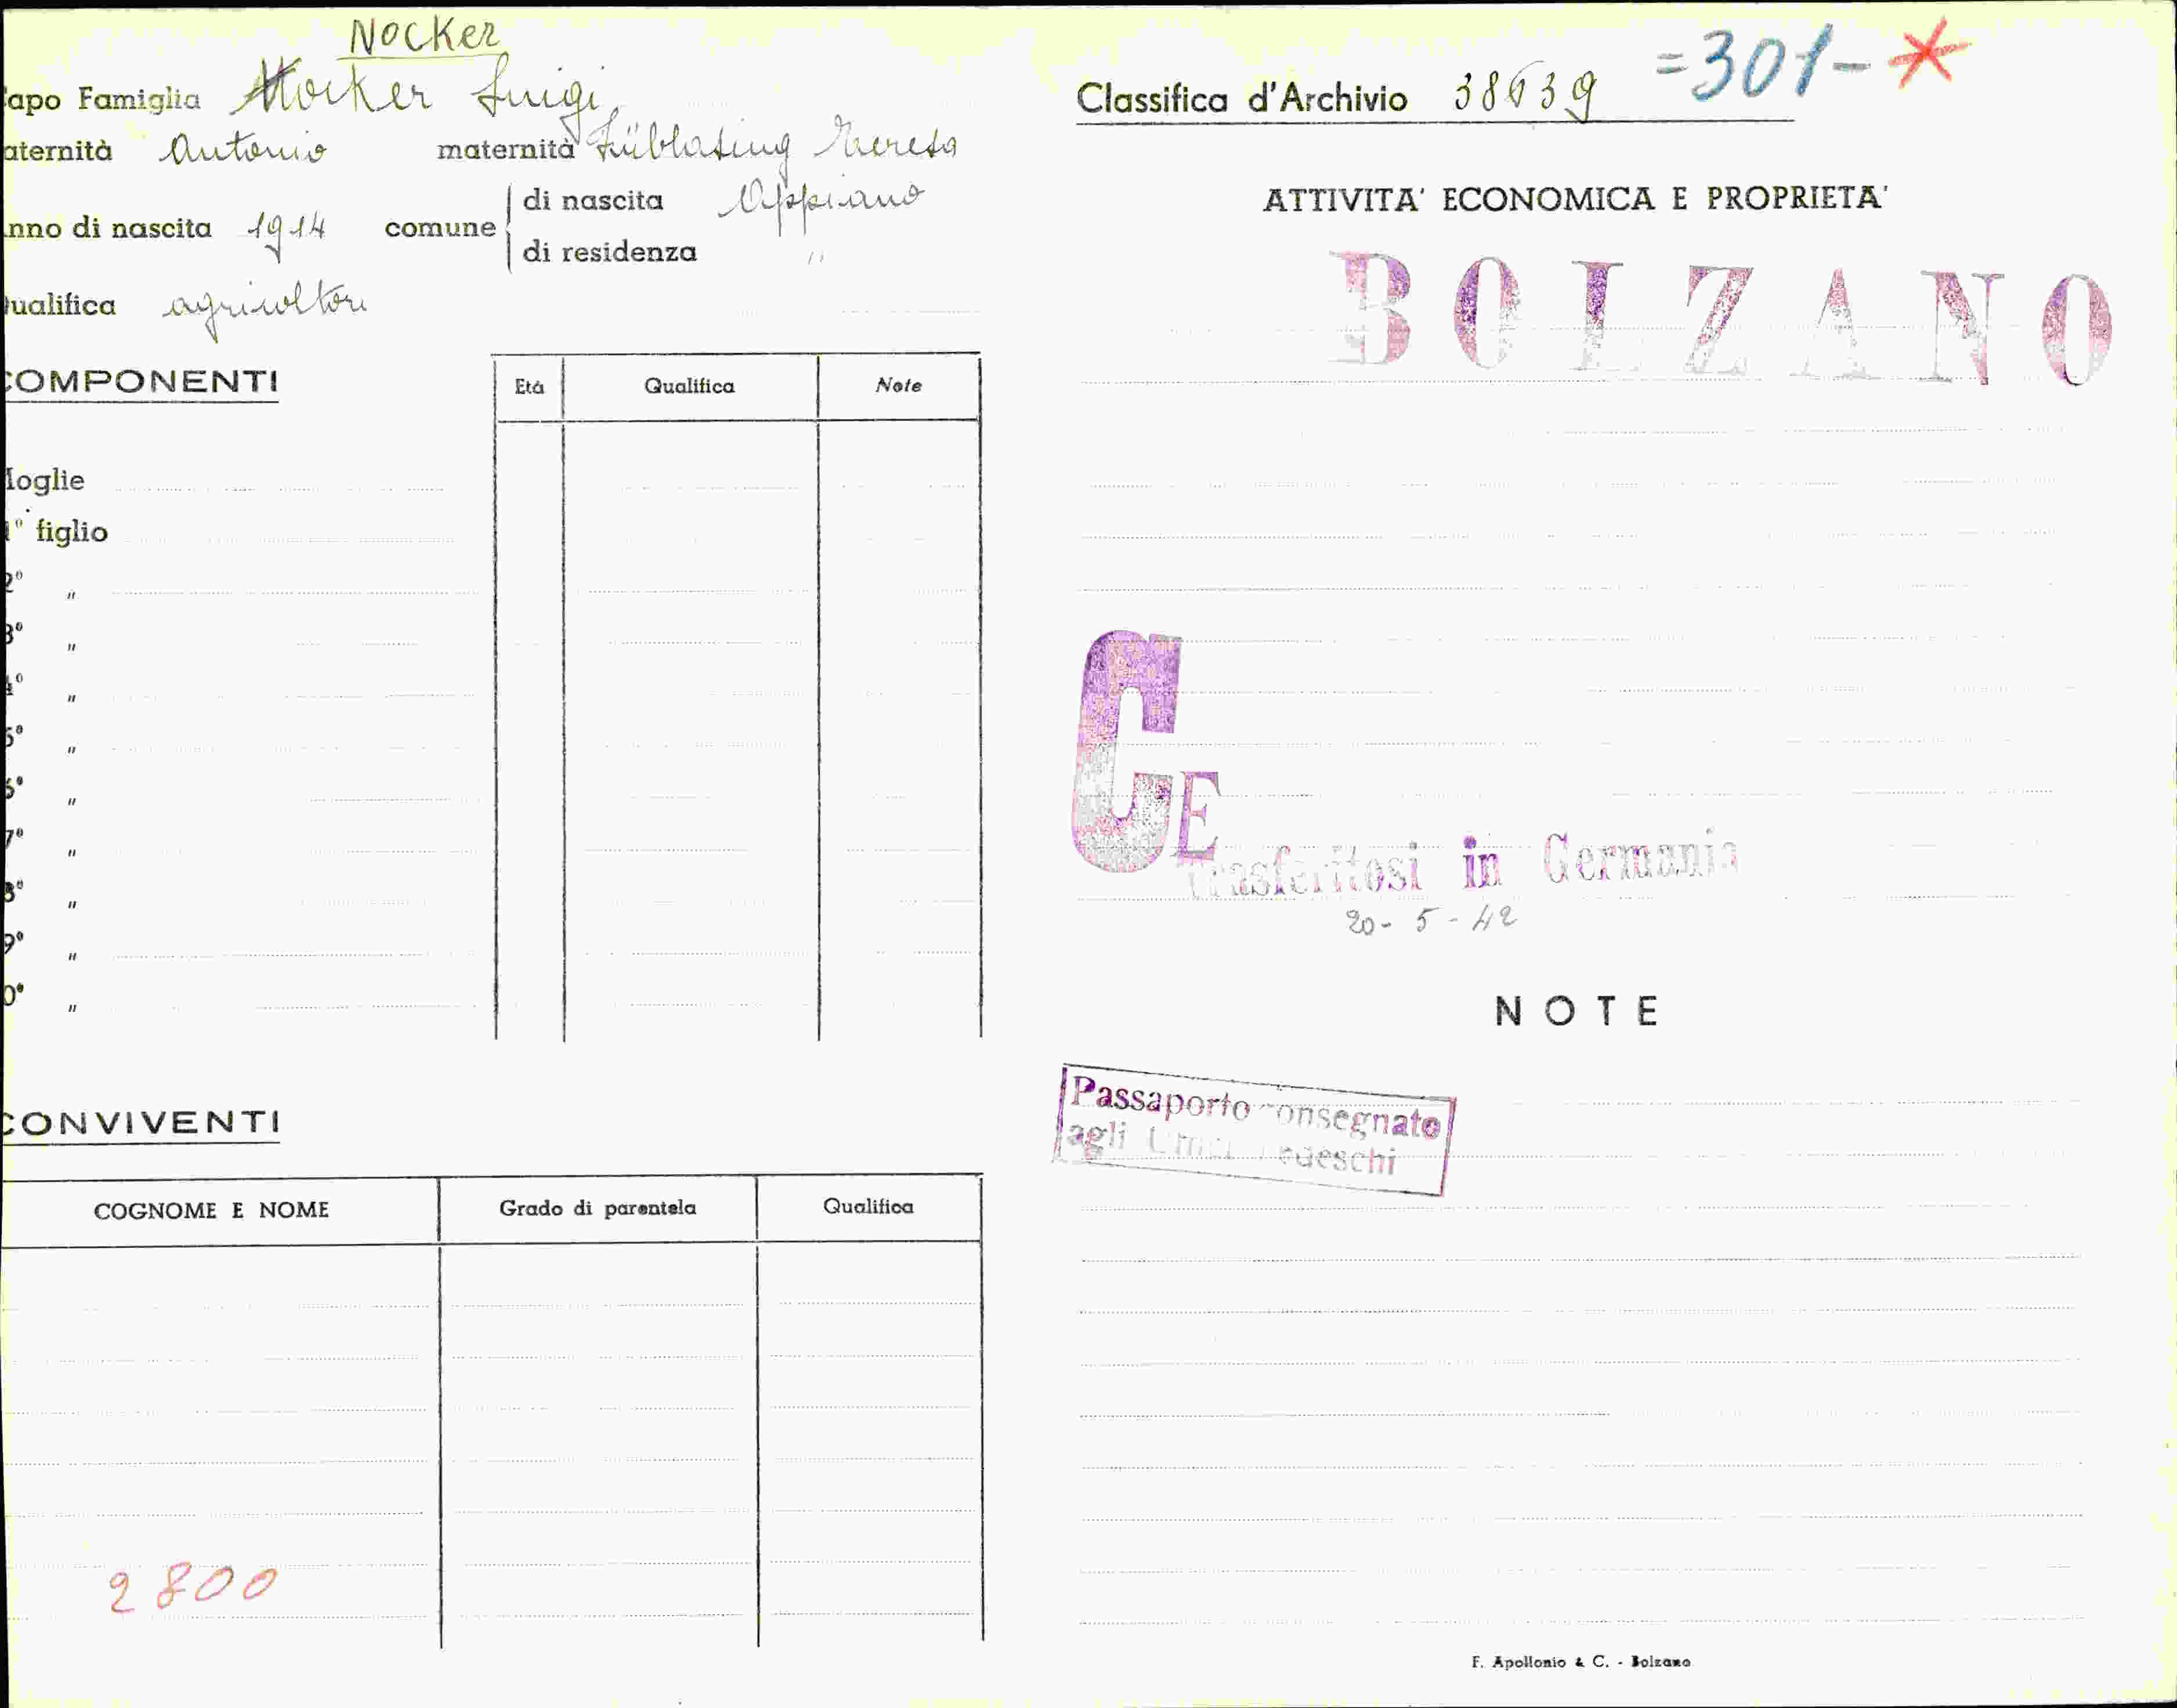 Nocker
apo Famiglia Nocker Luigi
aternità Antonio maternità Teresa
nno di nascita 1914 comune di nascita Appiano
di residenza "
ualifica agricoltore
COMPONENTI
Età Qualifica Note
oglie
1° figlio
2° "
3° "
4° "
5° "
6° "
7° "
8° "
9° "
0° "
CONVIVENTI
COGNOME E NOME Grado di parentela Qualifica
2800
Classifica d'Archivio 38639 =301-*
ATTIVITA' ECONOMICA E PROPRIETA'
BOLZANO
CE
trasferitosi in Germania
20-5-42
NOTE
Passaporto consegnato
agli Uffici Tedeschi
F. Apollonio & C. - Bolzano